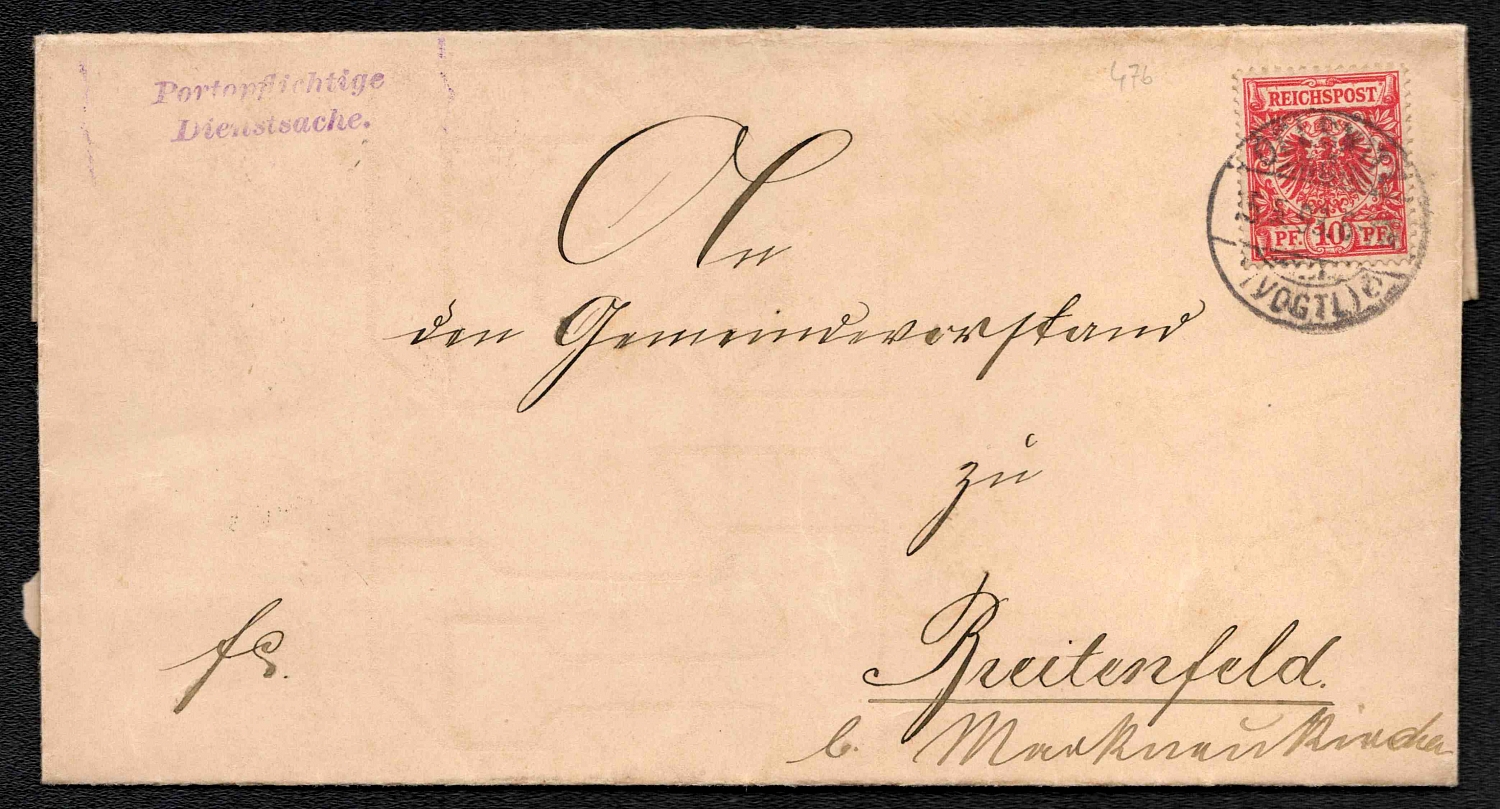 Portopflichtige
Dienstsache.
476
REICHSPOST
PF. 10 PF.
(VOGTL)
An
den Gemeindevorstand
zu
Breitenfeld.
b. Markneukirchen